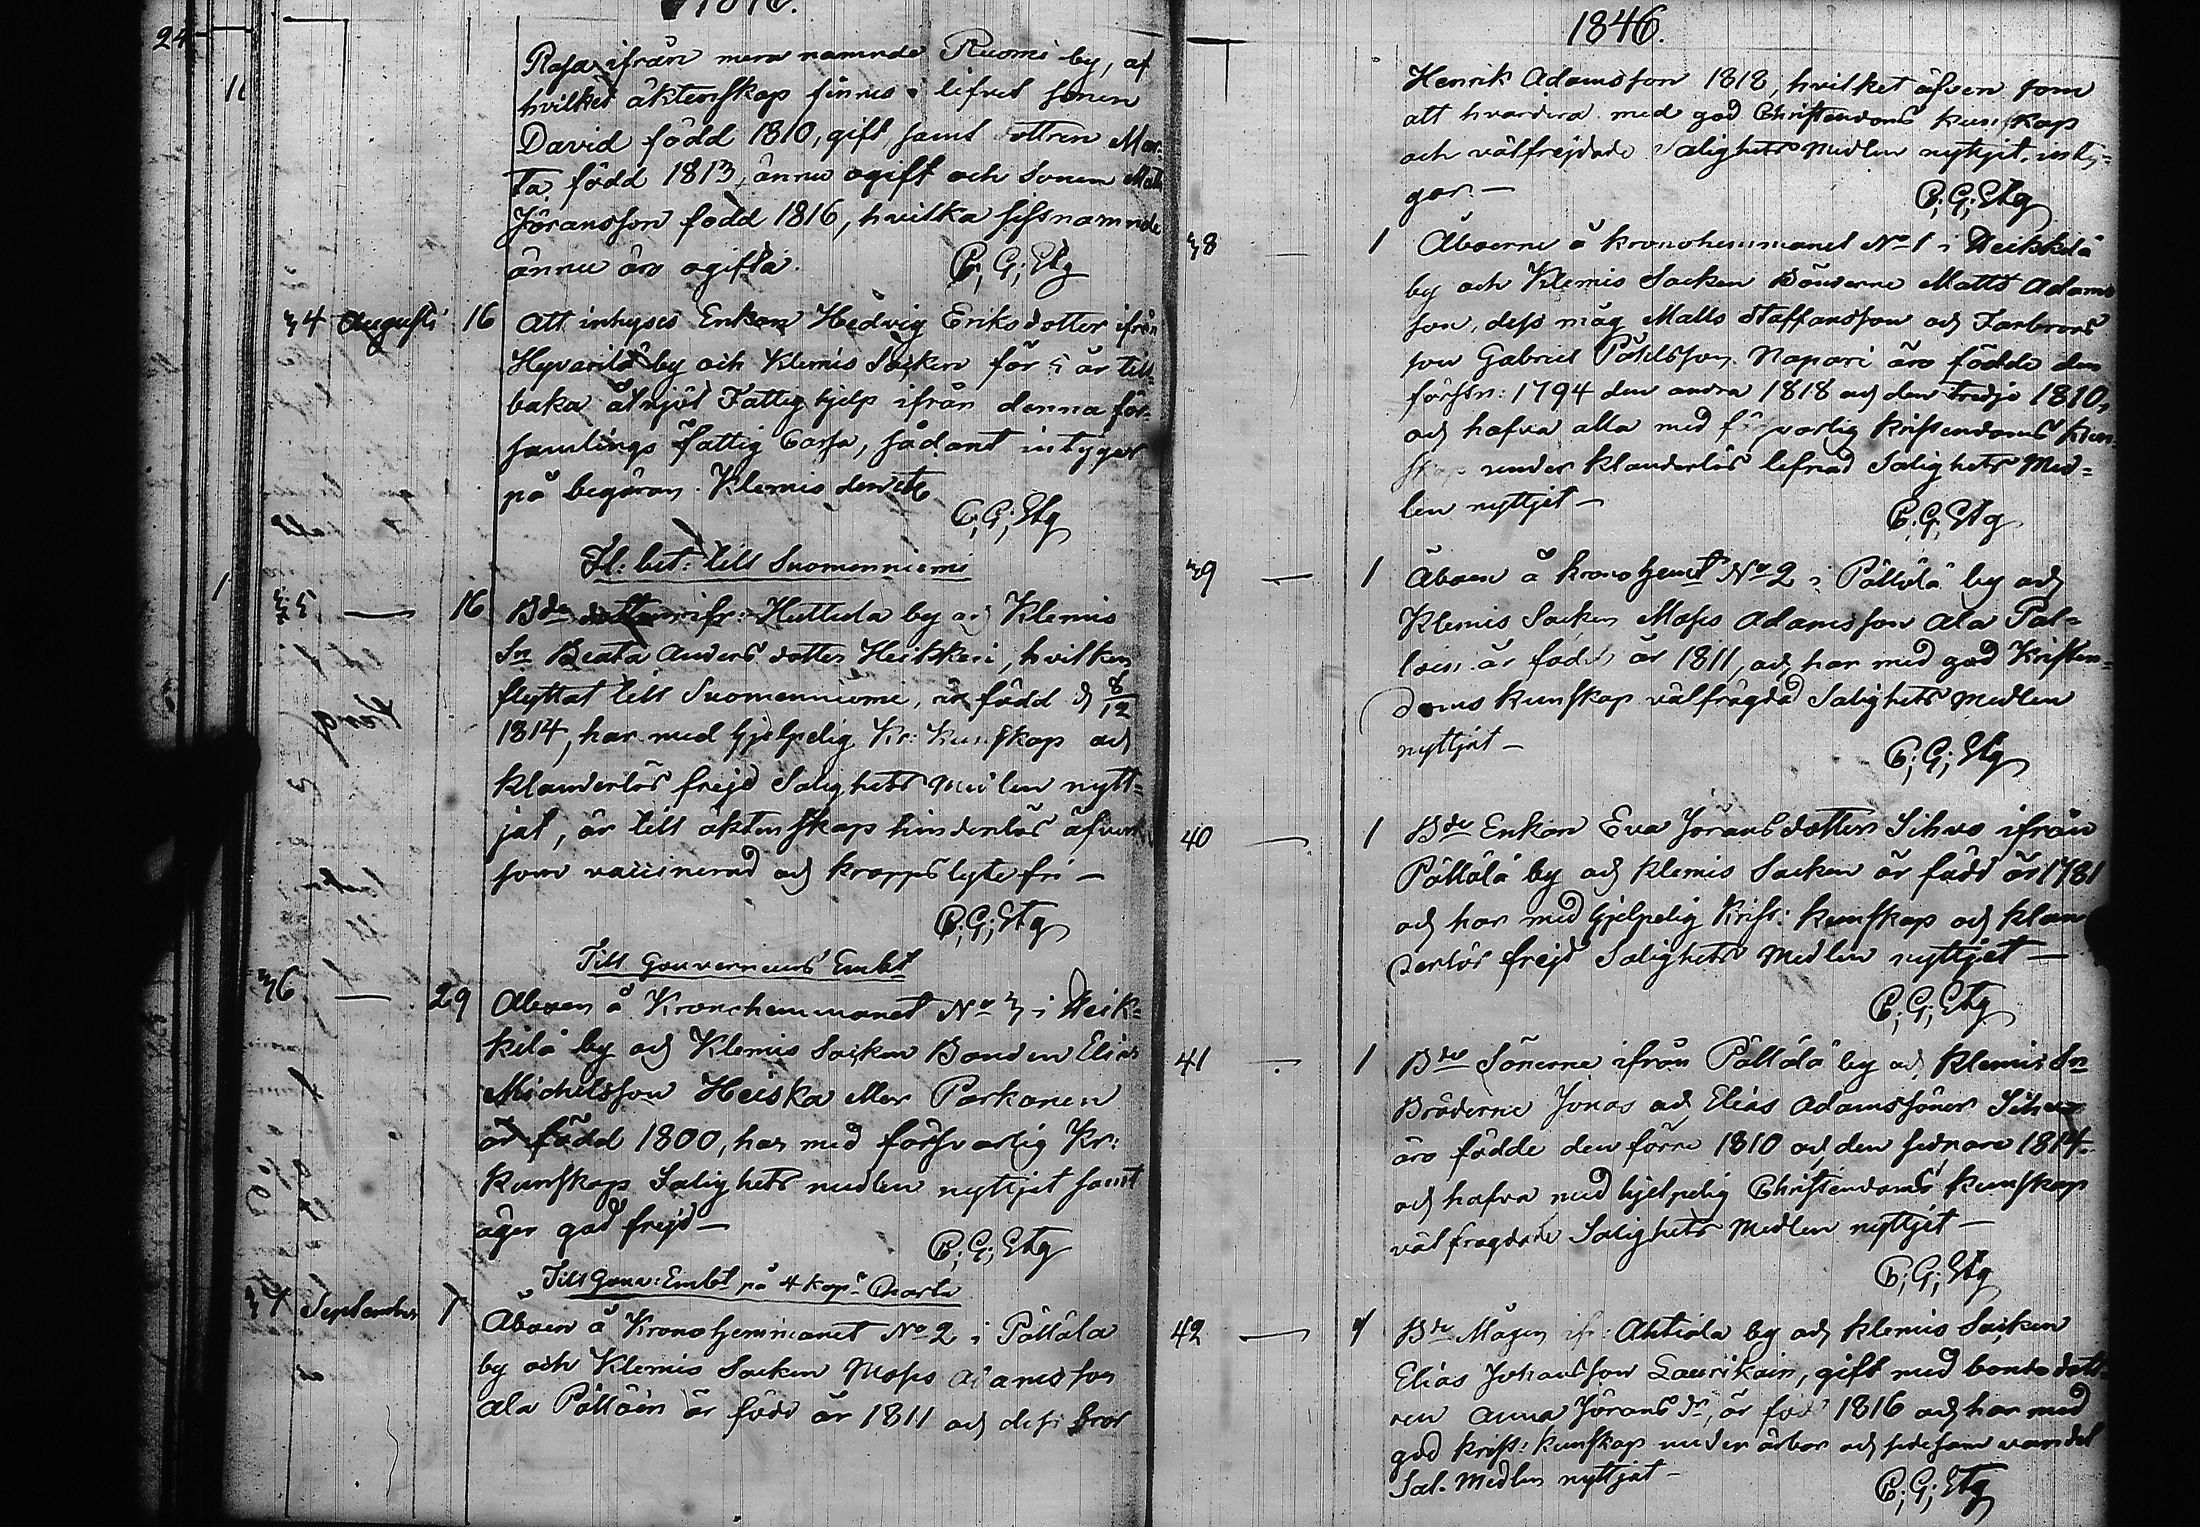 1846.
Rasa ifrån mera namnde Ruomi by, af
hvilket äktenskap finnes i lifvet sonen
David född 1810, gift samt dottren Mar-
ta född 1813, ännu ogift och Sonen Matts
Jöransson född 1816, hvilka sistnamnde
ännu äro ogifta.
C; G; Etg
34 Augusti 16 Att inhyses Enkan Hedvig Eriksdotter ifrån
Hyvarilä by och Klemis Socken för 5 år till-
baka åtnjöt Fattig hjelp ifrån denna för-
samlings fattig Cassa, sådant intygar
på begäran. Klemis den
C; G; Etg
Fl: bet: till Suomenniemi
35 — 16 Bde dotter ifr: Huttula by och Klemis
Sn Beata Anders dotter Heikkeri, hvilken
flyttat till Suomenniemi, är född d 8/12
1814, har med hjelpelig Kr: Kunskap och
klanderlös frejd Salighets Medlen nytt-
jat, är till äktenskap hinderlös äfven
som vaccinerad och kroppslyte fri —
C; G; Etg
Till Gouverneurs Embt
36 — 29 Åboen å Kronohemmanet No 3 i Heik-
kilä by och Klemis Socken Bonden Elias
Michelsson Heiska eller Parkonen
är född 1800, har med försvarlig Kr:
kunskap Salighets medlen nyttjat samt
äger god frejd —
C; G; Etg
Till Gouv: Embt på 4 kop: Charta
37 September 1 Åboen å Kronohemmanet No 2 i Pöllölä
by och Klemis Socken Moses Adamsson
Ala Pöllöin är född år 1811 och dess bror
1846.
Henrik Adamsson 1818, hvilket äfven som
att hvardera med god Christendoms kunskap
och välfrejdade Salighets Medlen nyttjat, inty-
gar. —
C; G; Etg
38 — 1 Åboerne å kronohemmanet No 1 i Heikkilä
by och Klemis Socken Bönderne Matts Adams-
son, dess måg Matts Staffansson och Farbrors
son Gabriel Påhlsson Napari äro födde den
förstn: 1794 den andra 1818 och den tredje 1810,
och hafva alla med försvarlig Kristendoms Kun-
skap under klanderlös lefnad Salighets Med-
len nyttjat —
C; G; Etg
39 — 1 Åboen å kronohemt No 2 i Pöllölä by och
Klemis Socken Moses Adamsson Ala Pöl-
löin är född år 1811, och har med god Kristen-
doms kunskap välfrägdad Salighets Medlen
nyttjat —
C; G; Etg
40 — 1 Bde Enkan Eva Jöransdotter Sihvo ifrån
Pöllölä by och Klemis Socken är född år 1781
och har med hjelpelig Krist: kunskap och klan-
derlös frejd Salighets Medlen nyttjat —
C; G; Etg
41 — 1 Bde Sönerne ifrån Pöllölä by och Klemis Sn
Bröderne Jonas och Elias Adamssöner Sihvo
äro födde den förre 1810 och den sednare 1814.
och hafva med hjelpelig Christendoms kunskap
välfrägdade Salighets Medlen nyttjat —
C; G; Etg
42 — 1 Bde Mågen ifr: Ahtiala by och Klemis Socken
Elias Johansson Laurikain, gift med bonde dott-
ren Anna Jörans dr, är född 1816 och har med
god krist: kunskap under ärbar och sedesam vandel
Sal. Medlen nyttjat —
C; G; Etg